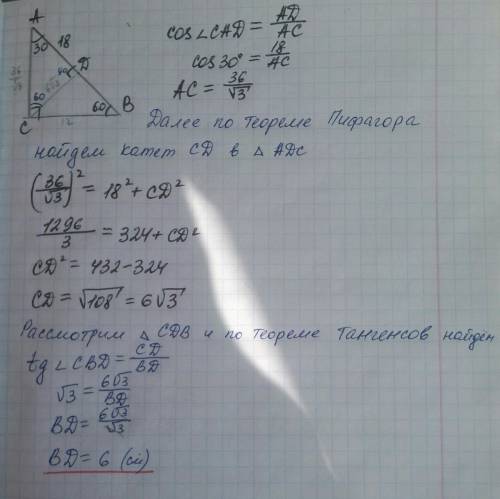 A
30 18
D
40
36/√3
60 6√3
60 B
C 12
cos∠CAD = AD/AC
cos30° = 18/AC
AC = 36/√3
Далее по теореме Пифагора
найдем катет CD в △ ADC
(36/√3)² = 18² + CD²
1296/3 = 324 + CD²
CD² = 432 - 324
CD = √108 = 6√3
Рассмотрим △ CDB и по теореме Тангенсов найдём
tg∠CBD = CD/BD
√3 = 6√3/BD
BD = 6√3/√3
BD = 6 (см)